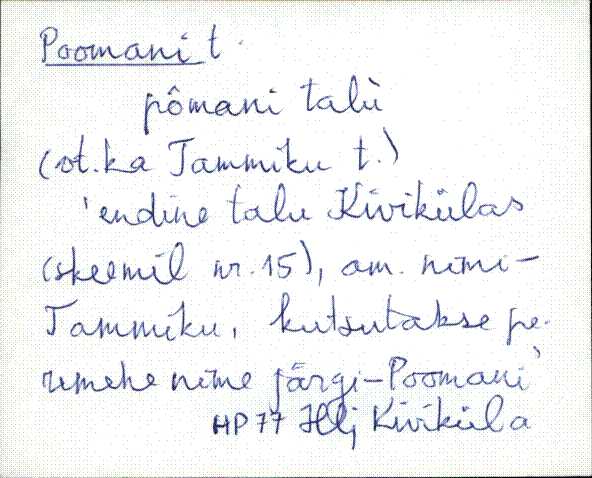 Poomani t.
pômani talù
(vt. ka Tammiku t.)
'endine talu Kiviküla̬s
(skeemil nr. 15), am. nimi-
Tammiku, kutsutakse pe-
remehe nime järgi-Poomani'
HP 77 Hlj Kiviküla